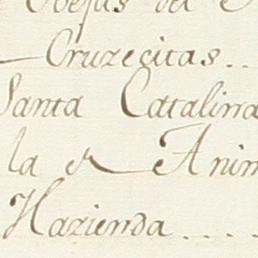 Ovejas de
Cruzecitas..
Santa Catalina
la de Anim
Hazienda.....